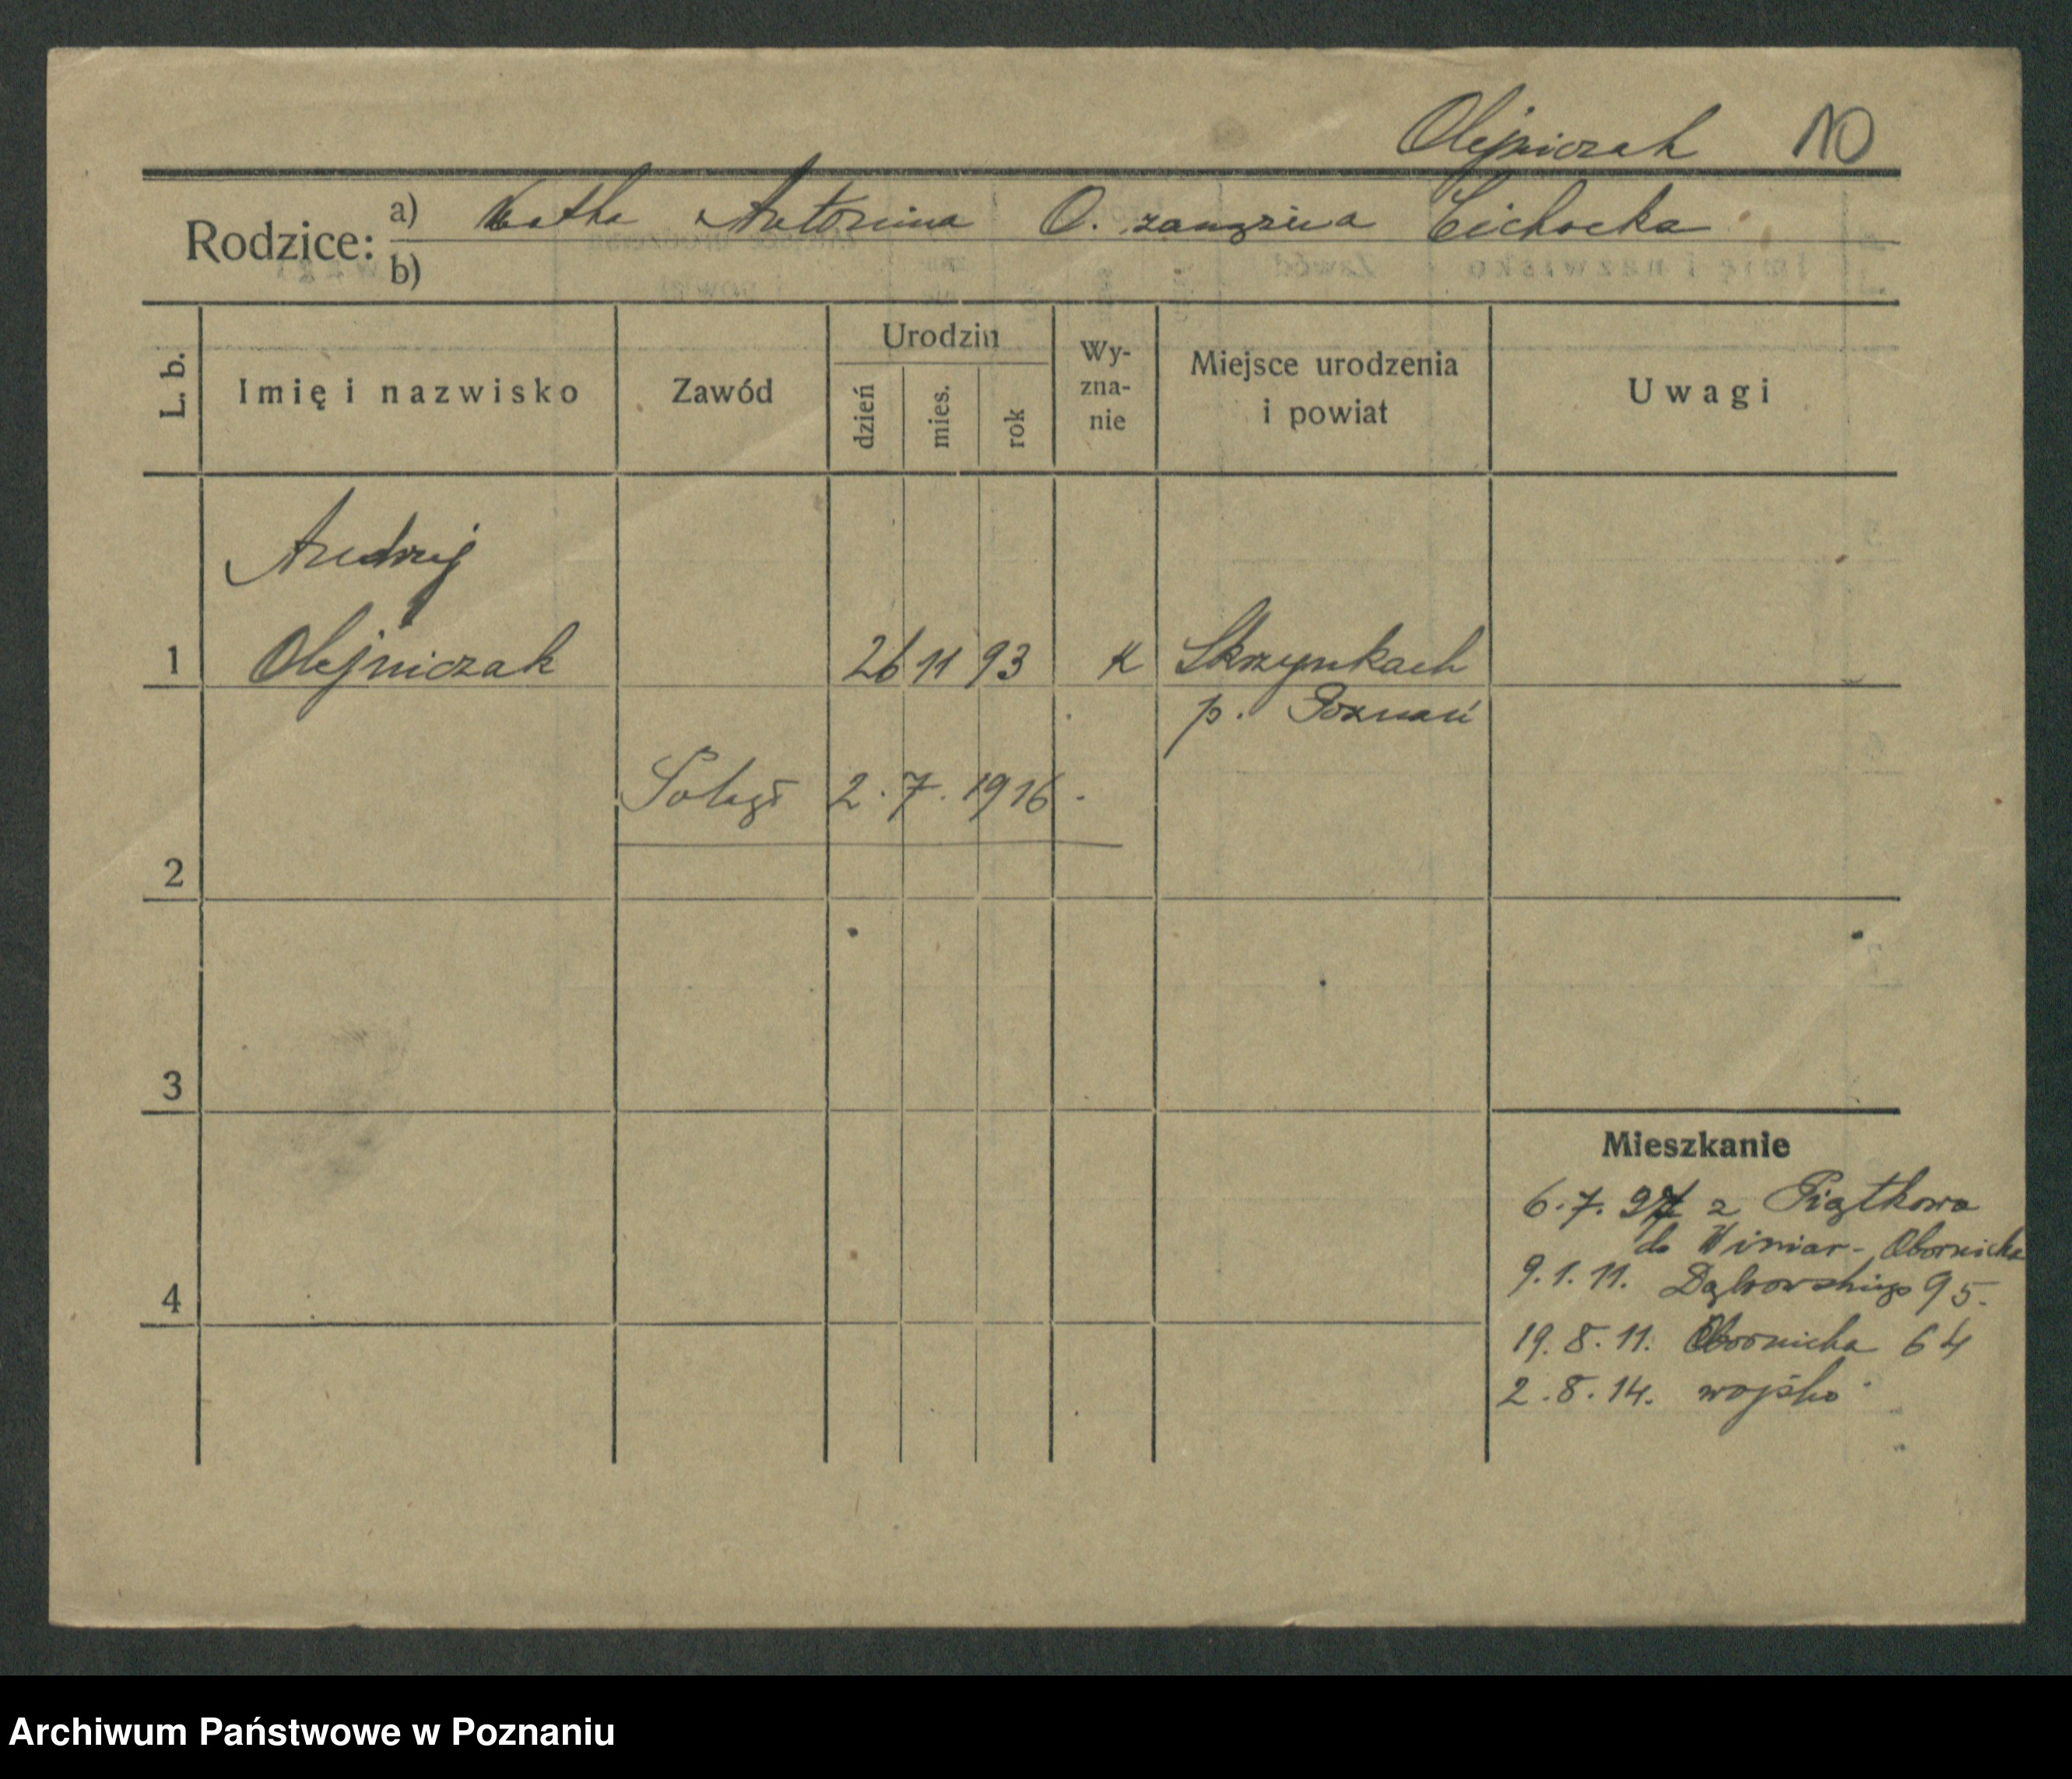 Olejniczak 10
Rodzice: a) Matka Antonina O. zamężna Cichocka
b)
L. b. Imię i nazwisko Zawód Urodzin dzień mies. rok Wy-zna-nie Miejsce urodzenia i powiat Uwagi
Andrzej
1 Olejniczak 26 11 93 K Skrzynkach
p. Poznań
Poległ 2. 7. 1916.
2
3
Mieszkanie
6. 7. 97 z Piątkowa
do Winiar - Obornicka
9. 1. 11. Dąbrowskiego 95.
4
19. 8. 11. Obornicka 64
2. 8. 14. wojsko
Archiwum Państwowe w Poznaniu